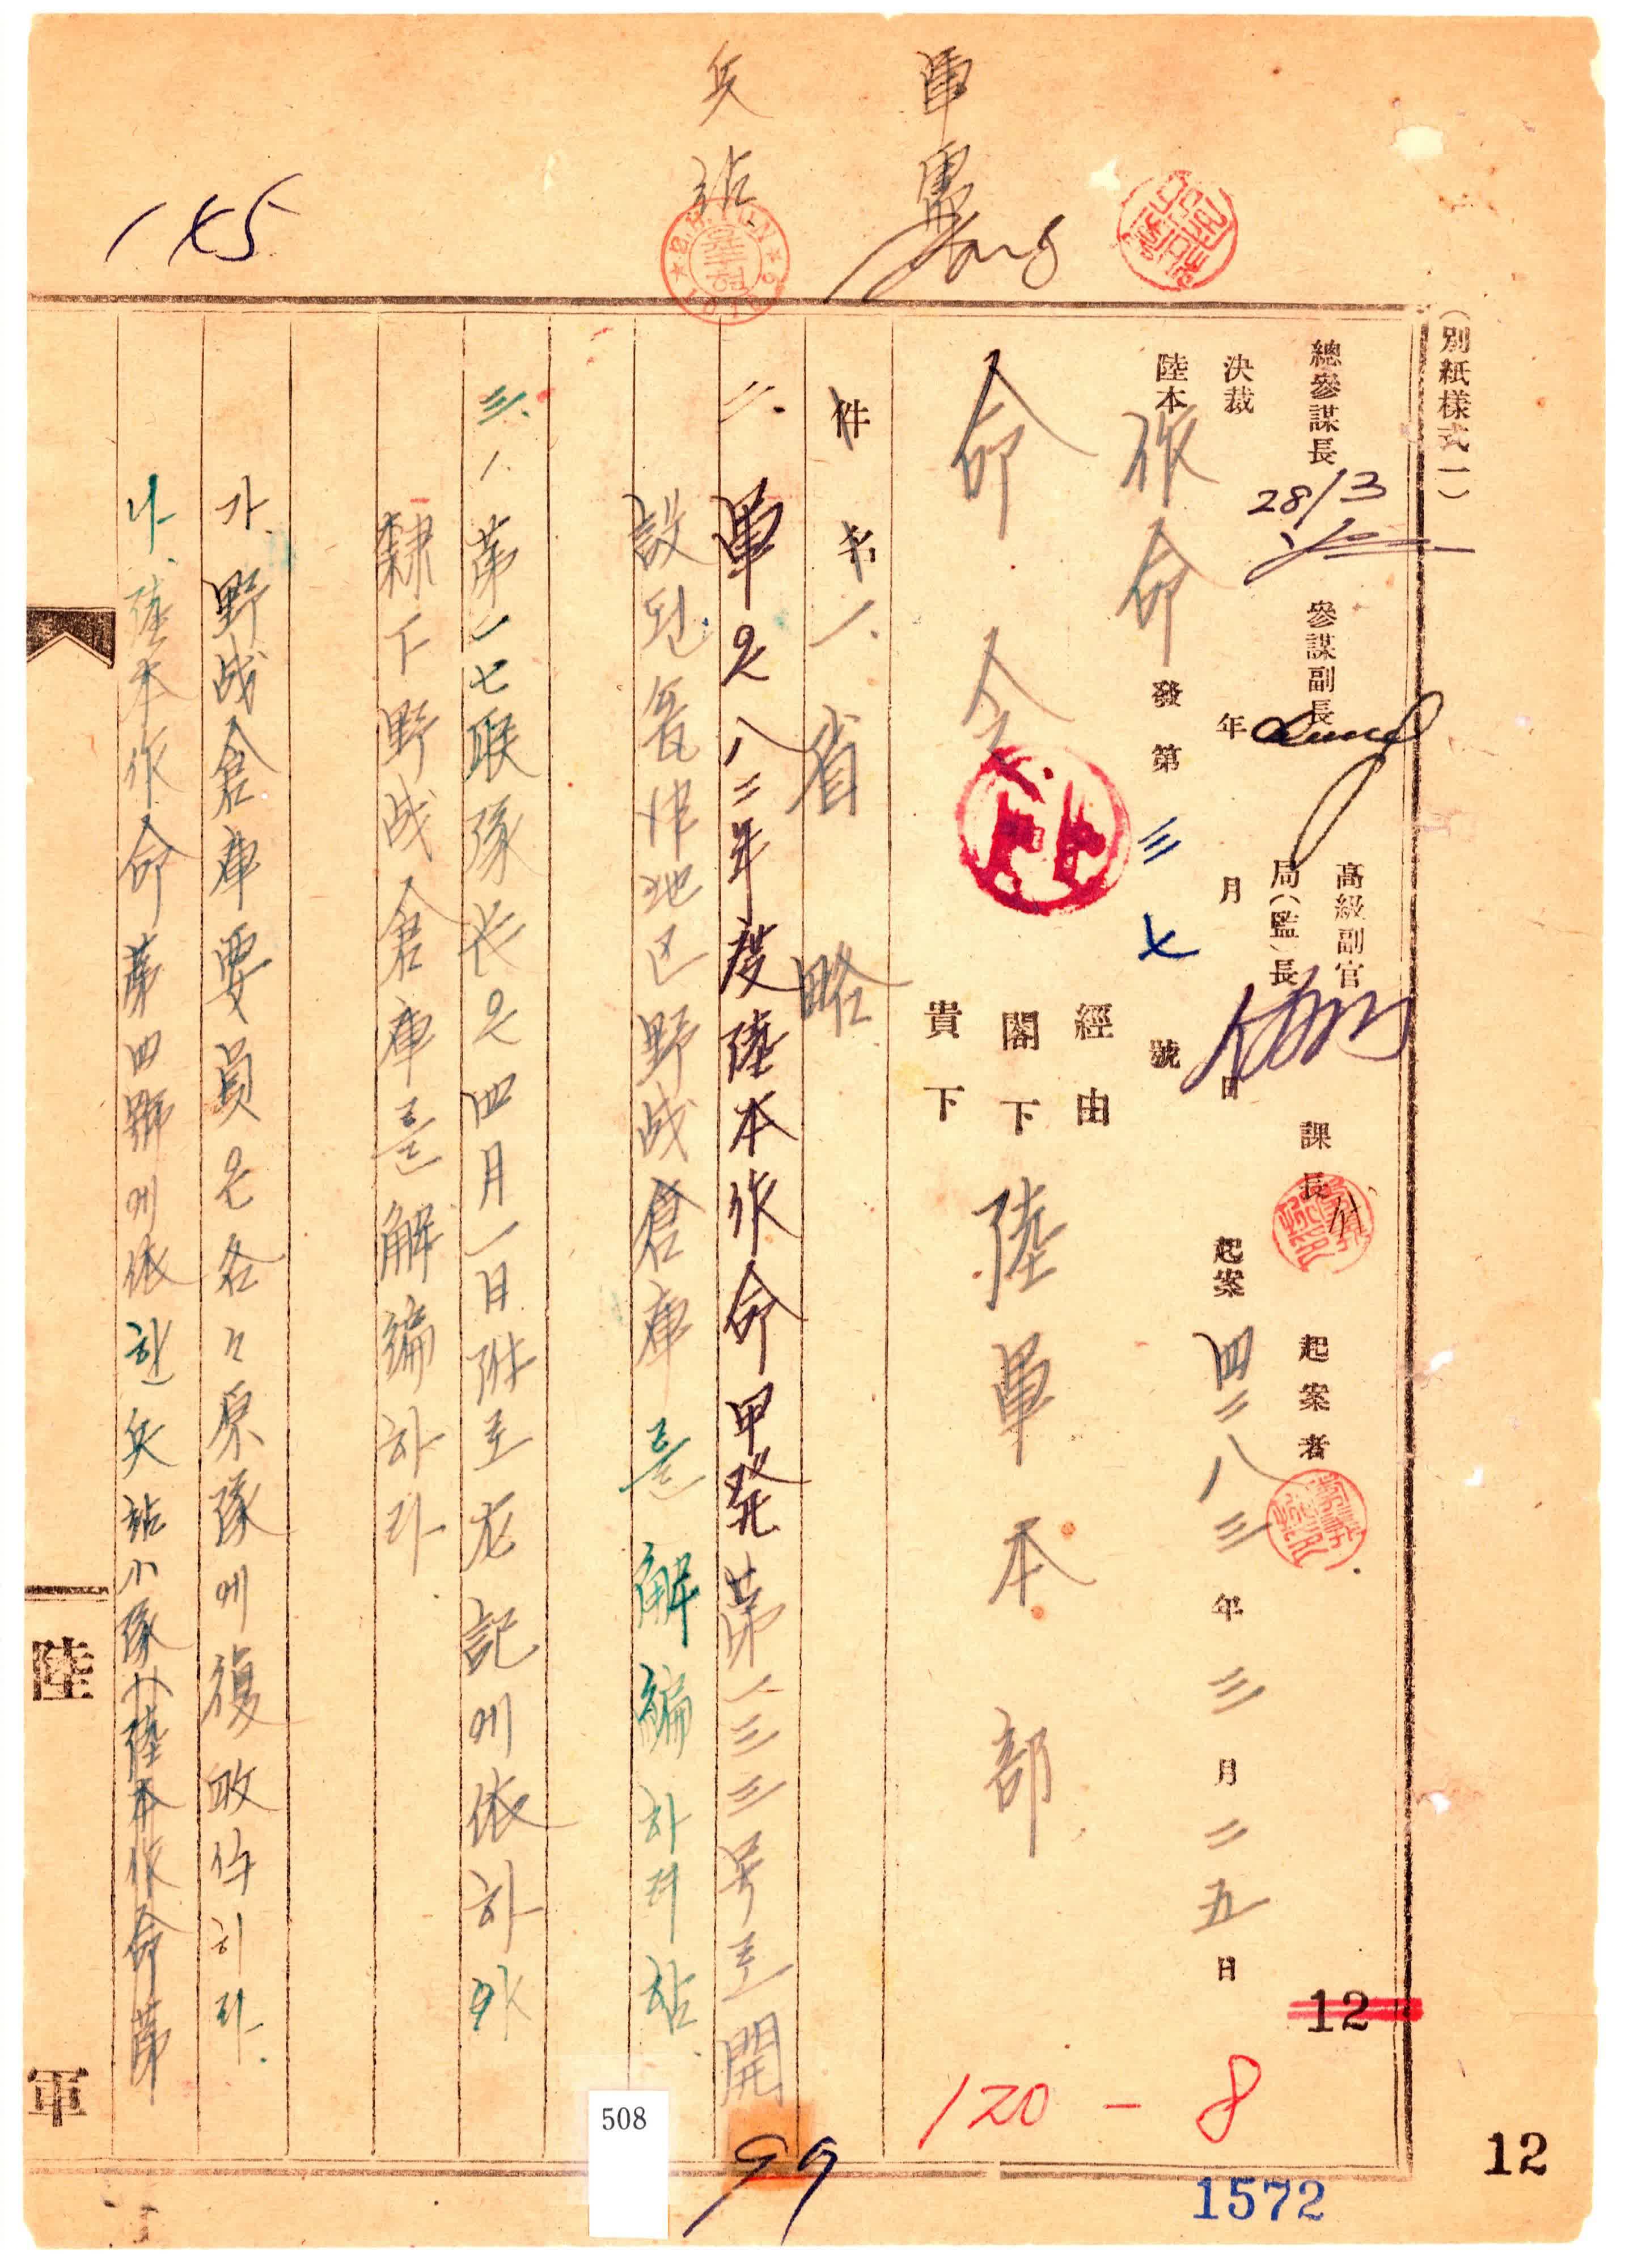 (別紙樣式一)
總參謀長 28/3 參謀副長 高級副官 局(監)長 課長 起案者
決裁 年 月 日 起案 四二八三年 三月 二五日
陸本 作命 發第 三七 號
經由
命令 閣下 陸軍本部
貴下
件名 一、省略
二、單운八二年度陸本作命甲発第一三三号로開
設된瓮津地区野战倉庫를解編하려함
三、1、第一七联隊长은四月一日附로左記에依하야
隸下野战倉庫를解編하라
가、野战倉庫要員은各々原隊에復敀식히라.
나、陸本作命第四號에依한兵站小隊(陸本作命第
軍
兵站
145
12
120-8
1572
12
508
99
陸
軍